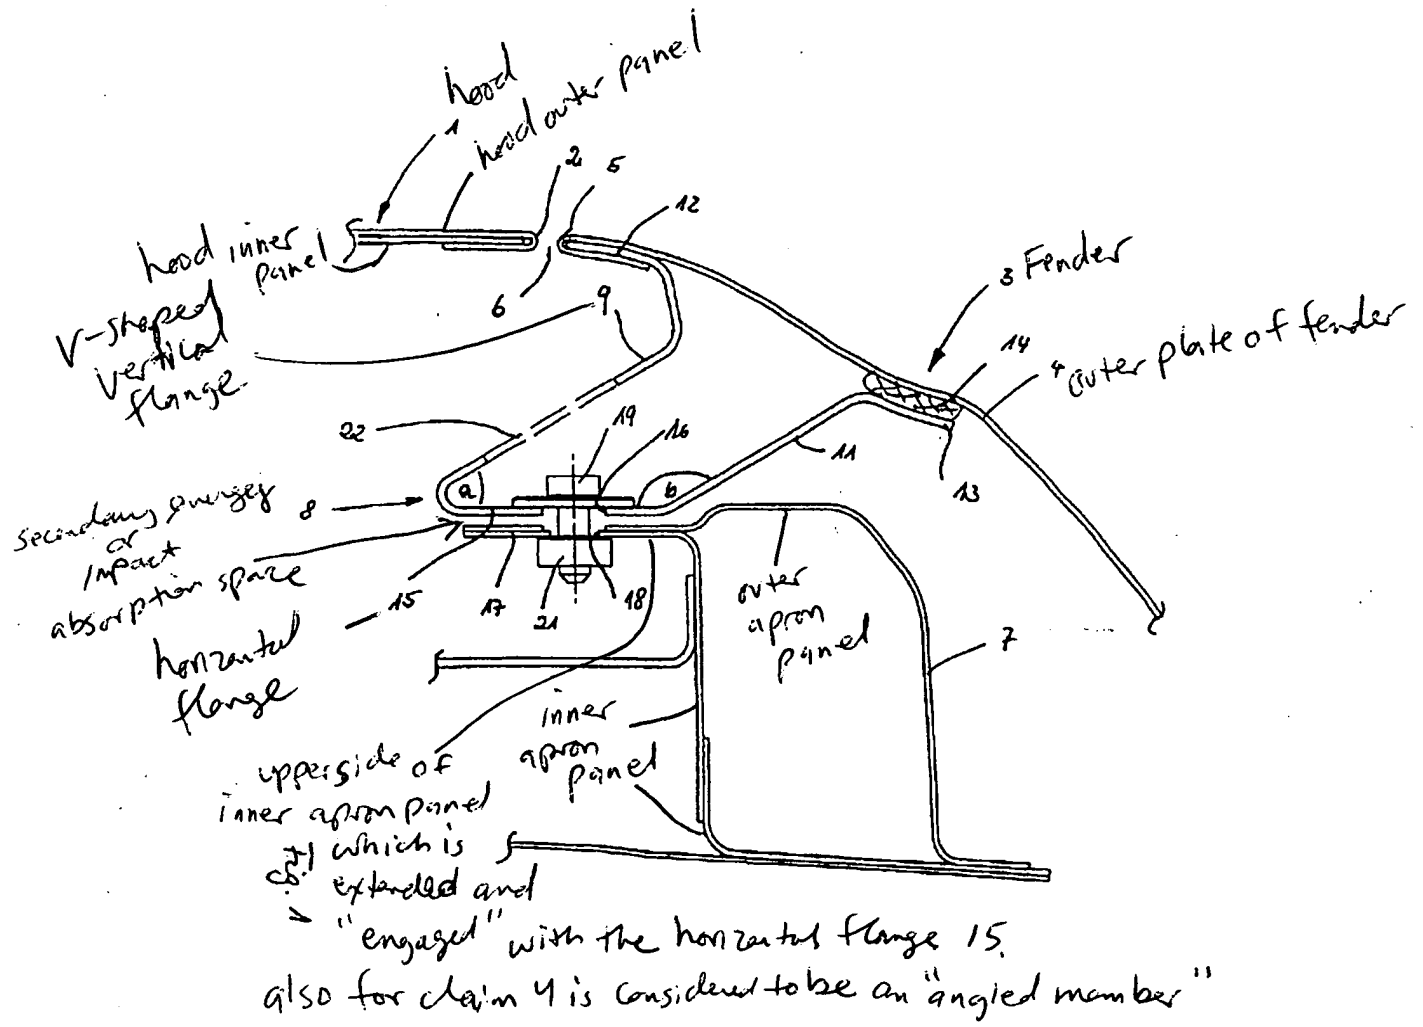 hood
1
hood outer panel
2
5
12
hood inner
panel
6
9
3 Fender
V-shaped
vertical
flange
14
4 outer plate of fender
22
19
16
a
b
11
13
secondary energy
or
impact
absorption space
8
15
17
21
18
outer
apron
panel
7
horizontal
flange
inner
apron
panel
upperside of
inner apron panel
which is
extended and
"engaged" with the horizontal flange 15.
also for claim 4 is considered to be an "angled member"